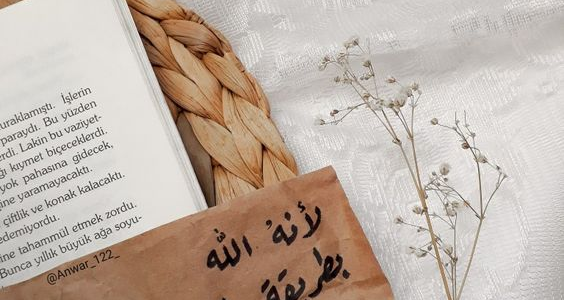 uraklamıştı. İşlerin
paraydı. Bu yüzden
erdi. Lakin bu vaziyet-
ğı kıymet biçeceklerdi.
yok pahasına gidecek,
ine yaramayacaktı.
çiftlik ve konak kalacaktı.
edemiyordu.
ine tahammül etmek zordu.
Bunca yıllık büyük ağa soyu-
@Anwar_122_
لأنهُ الله
بطريقة